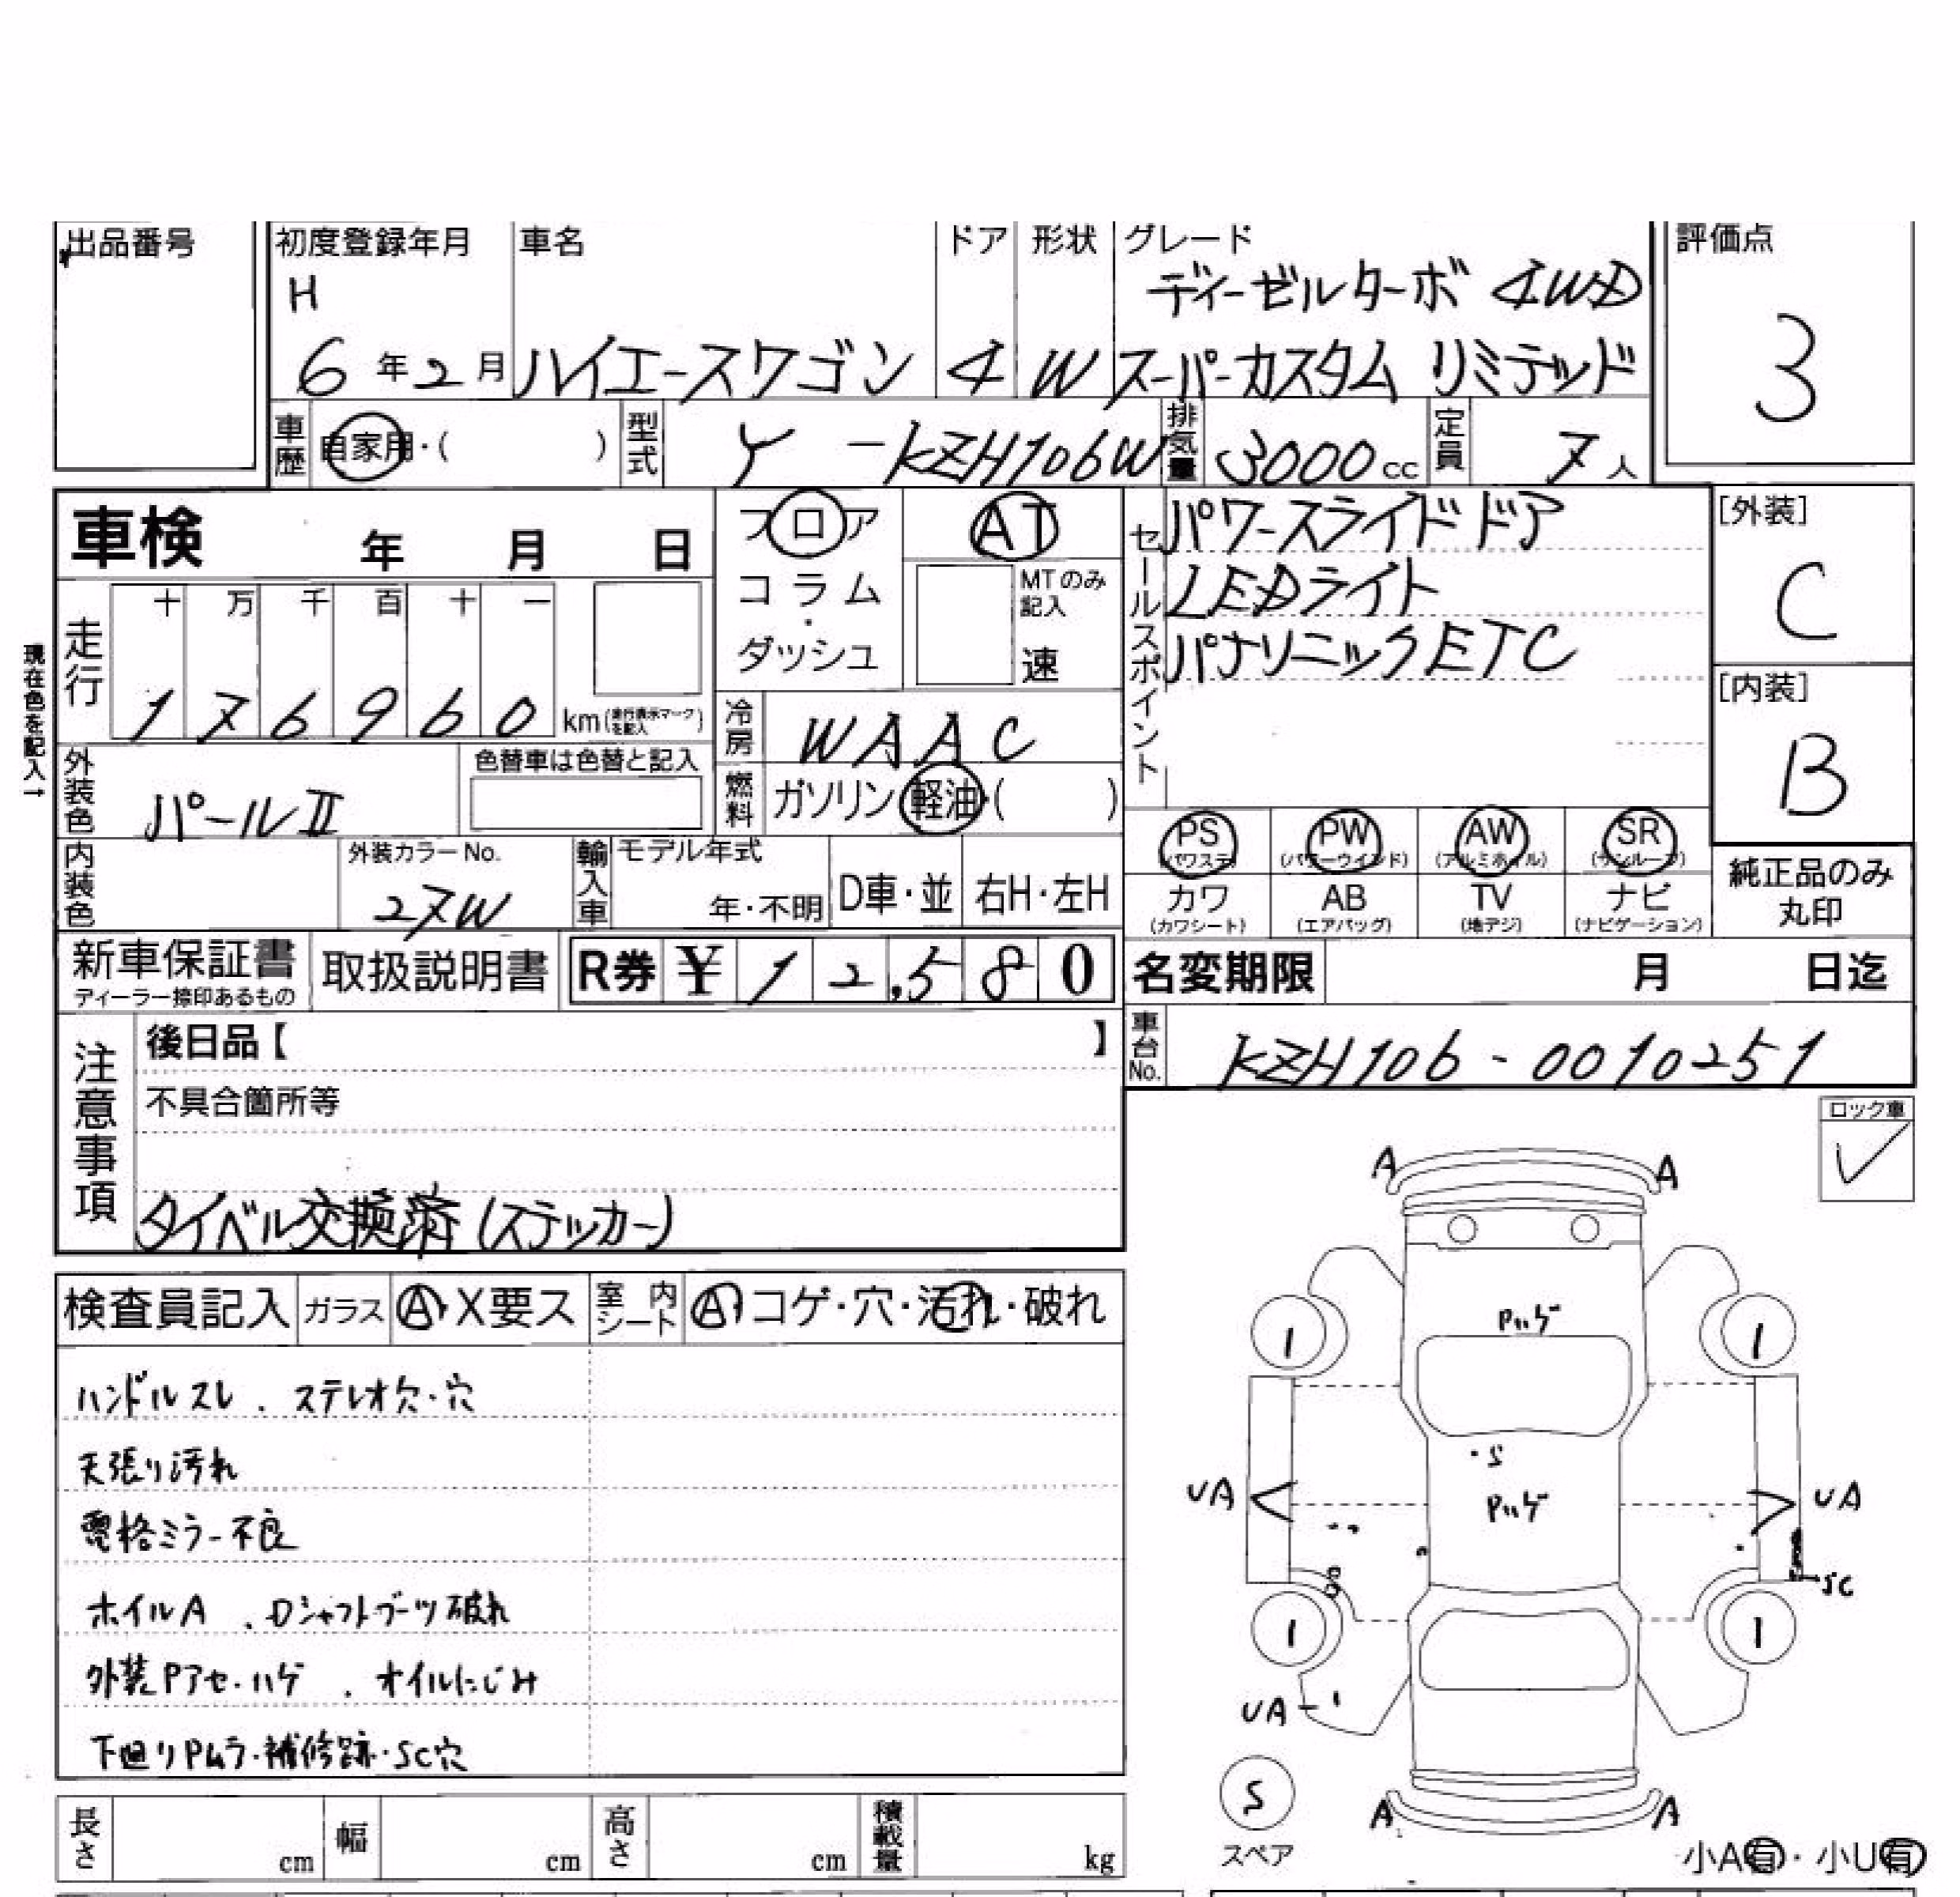 出品番号
初度登録年月 車名 ドア 形状 グレード 評価点
H ディーゼルターボ 4WD
6年2月 ハイエースワゴン 4 W スーパーカスタム リミテッド 3
車歴 自家用・( ) 型式 Y -KZH106W 排気量 3000cc 定員 7人
車検 年 月 日
フロア AT
コラム・
ダッシュ
MTのみ記入
速
セールスポイント
パワースライドドア
LEDライト
パナソニックETC
[外装]
C
[内装]
B
現在色を記入→
走行 十 万 千 百 十 一
1 7 6 9 6 0 km(走行表示マークを記入)
冷房 WAAC
外装色 パールII 色替車は色替と記入
燃料 ガソリン・軽油・( )
PS PW AW SR
(パワステ) (パワーウインド) (アルミホイル) (サンルーフ)
カワ AB TV ナビ
(カワシート) (エアバッグ) (地デジ) (ナビゲーション)
純正品のみ
丸印
内装色 外装カラーNo. 27W 輸入車 モデル年式 年・不明 D車・並 右H・左H
新車保証書 取扱説明書 R券 ¥ 12,580
ディーラー捺印あるもの
名変期限 月 日迄
注意事項
後日品【 】
車台No. KZH106-0010251
不具合箇所等
タイベル交換済(ステッカー)
ロック車
✓
検査員記入 ガラス A・X要ス 室内シート A・コゲ・穴・汚れ・破れ
ハンドルスレ . ステレオ欠・穴
天張り汚れ
電格ミラー不良
ホイルA . Dシャフトブーツ破れ
外装Pアセ・ハゲ . オイルにじみ
下廻りPムラ・補修跡・SC穴
A A
Pハゲ
1 1
・S
UA Pハゲ UA
SC
1 1
UA
S
スペア
A A
小A有・小U有
長さ cm 幅 cm 高さ cm 積載量 kg